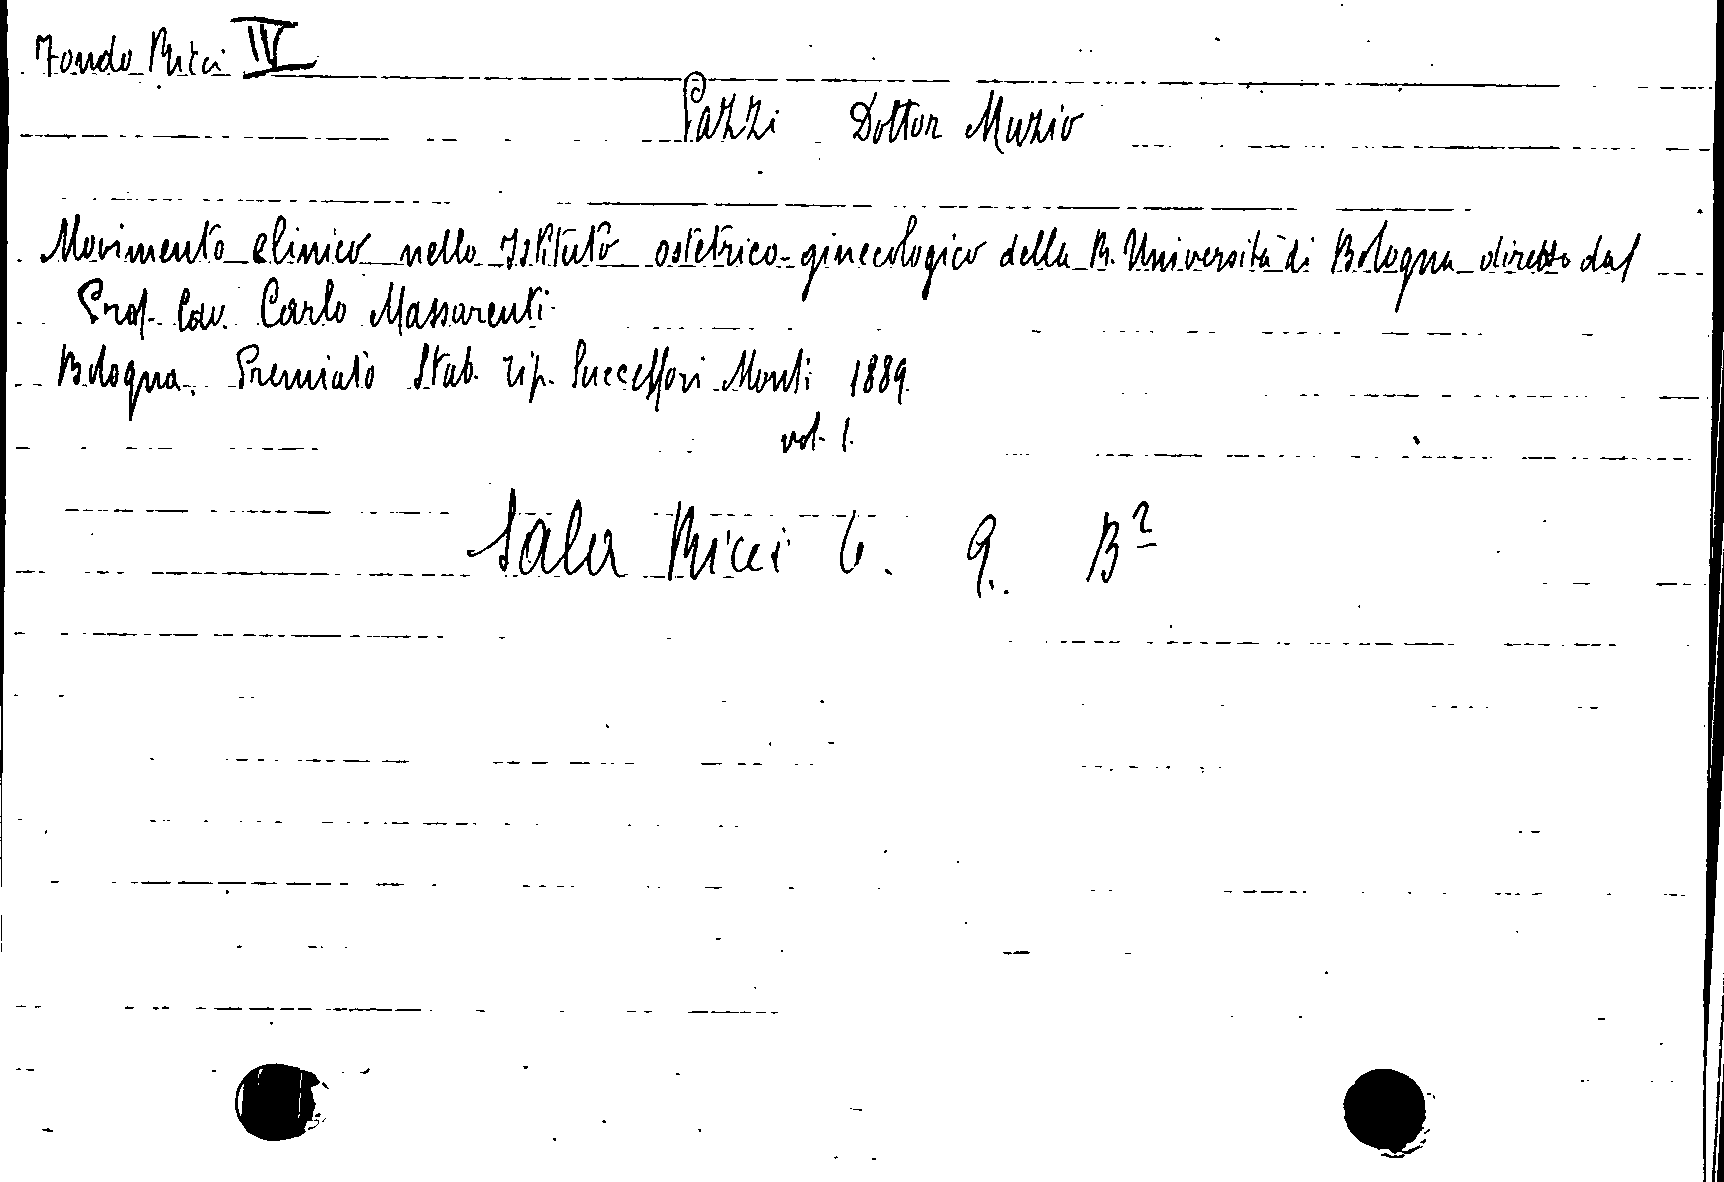 Fondo Ricci IV
Pazzi Dottor Muzio
Movimento clinico nello Istituto ostetrico-ginecologico della R. Università di Bologna diretto dal
Prof. Cav. Carlo Massarenti.
Bologna. Premiato Stab. Tip. Successori Monti 1889.
vol. 1.
Sala Ricci 6. 9. B²